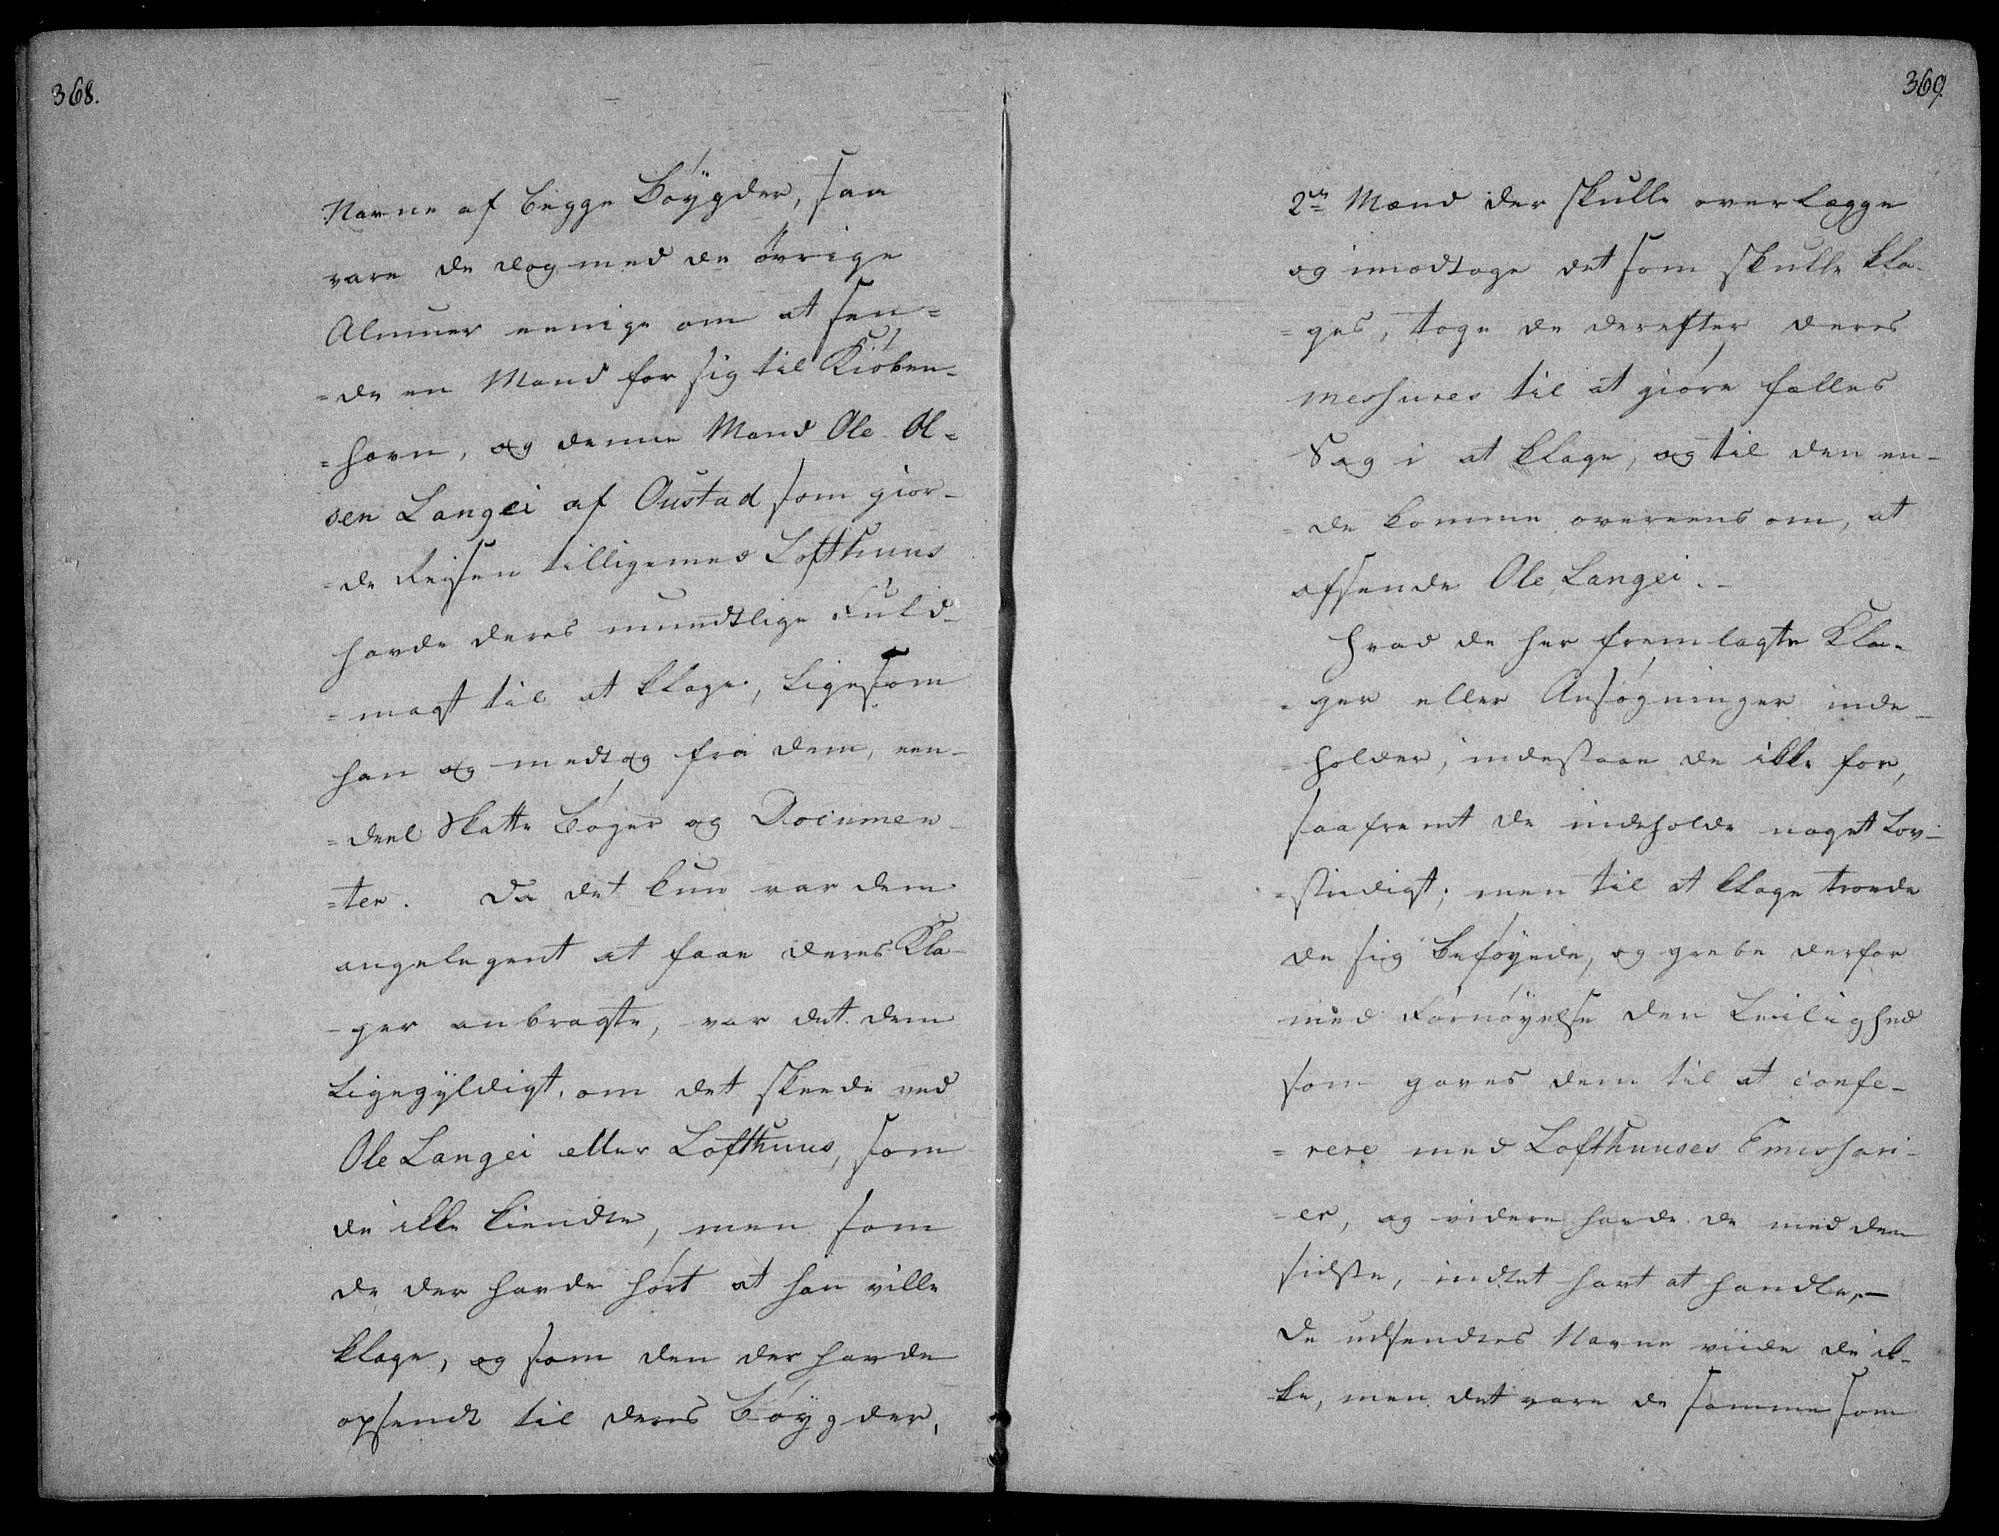 368.
Navne af begge Bøygder, saa
vare de dog med de øvrige
Almuer eenige om at sen=
=de en Mand for sig til Kiøben-
=havn, og denne Mand Ole Ol=
sen Langei af Oustad som gior-
=de Reisen tilligemed Lofthuus
havde deres mundtlige Fuld-
=magt til at klage, ligesom
han og medtog fra dem, een-
=deel Skatte Bøger og Documen-
=ter. Da det kun var dem
angelegent at faae deres Kla-
-ger anbragte, var det dem
Ligegyldigt, om det skeede ved
Ole Langei eller Lofthuus, som
de ikke kiendte, men som
de der havde hørt at han ville
klage, og som den der havde
opsendt til deres Bøygder,
369.
2de Mænd der skulle overlægge
og imodtage det som skulle kla-
=ges, toge de derefter deres
messures til at giøre fælles
Sag i at klage, og til den en-
=de komme overeens om, at
afsende Ole Langei. -
Hvad de her fremlagte Kla-
=ger eller Ansøgninger inde-
=holder, indestaae de ikke for,
saafremt de indeholde noget Lov-
=stridigt; men til at klage troede
de sig beføyede, og grebe derfor
med Fornøyelse den Leilighed
som gaves dem til at confe-
=rere med Lofthuuses Emissari-
=er, og videre havde de med den
sidste, indtet havt at handle, -
De udsendtes Navne viide de ik-
ke, men det vare de samme som